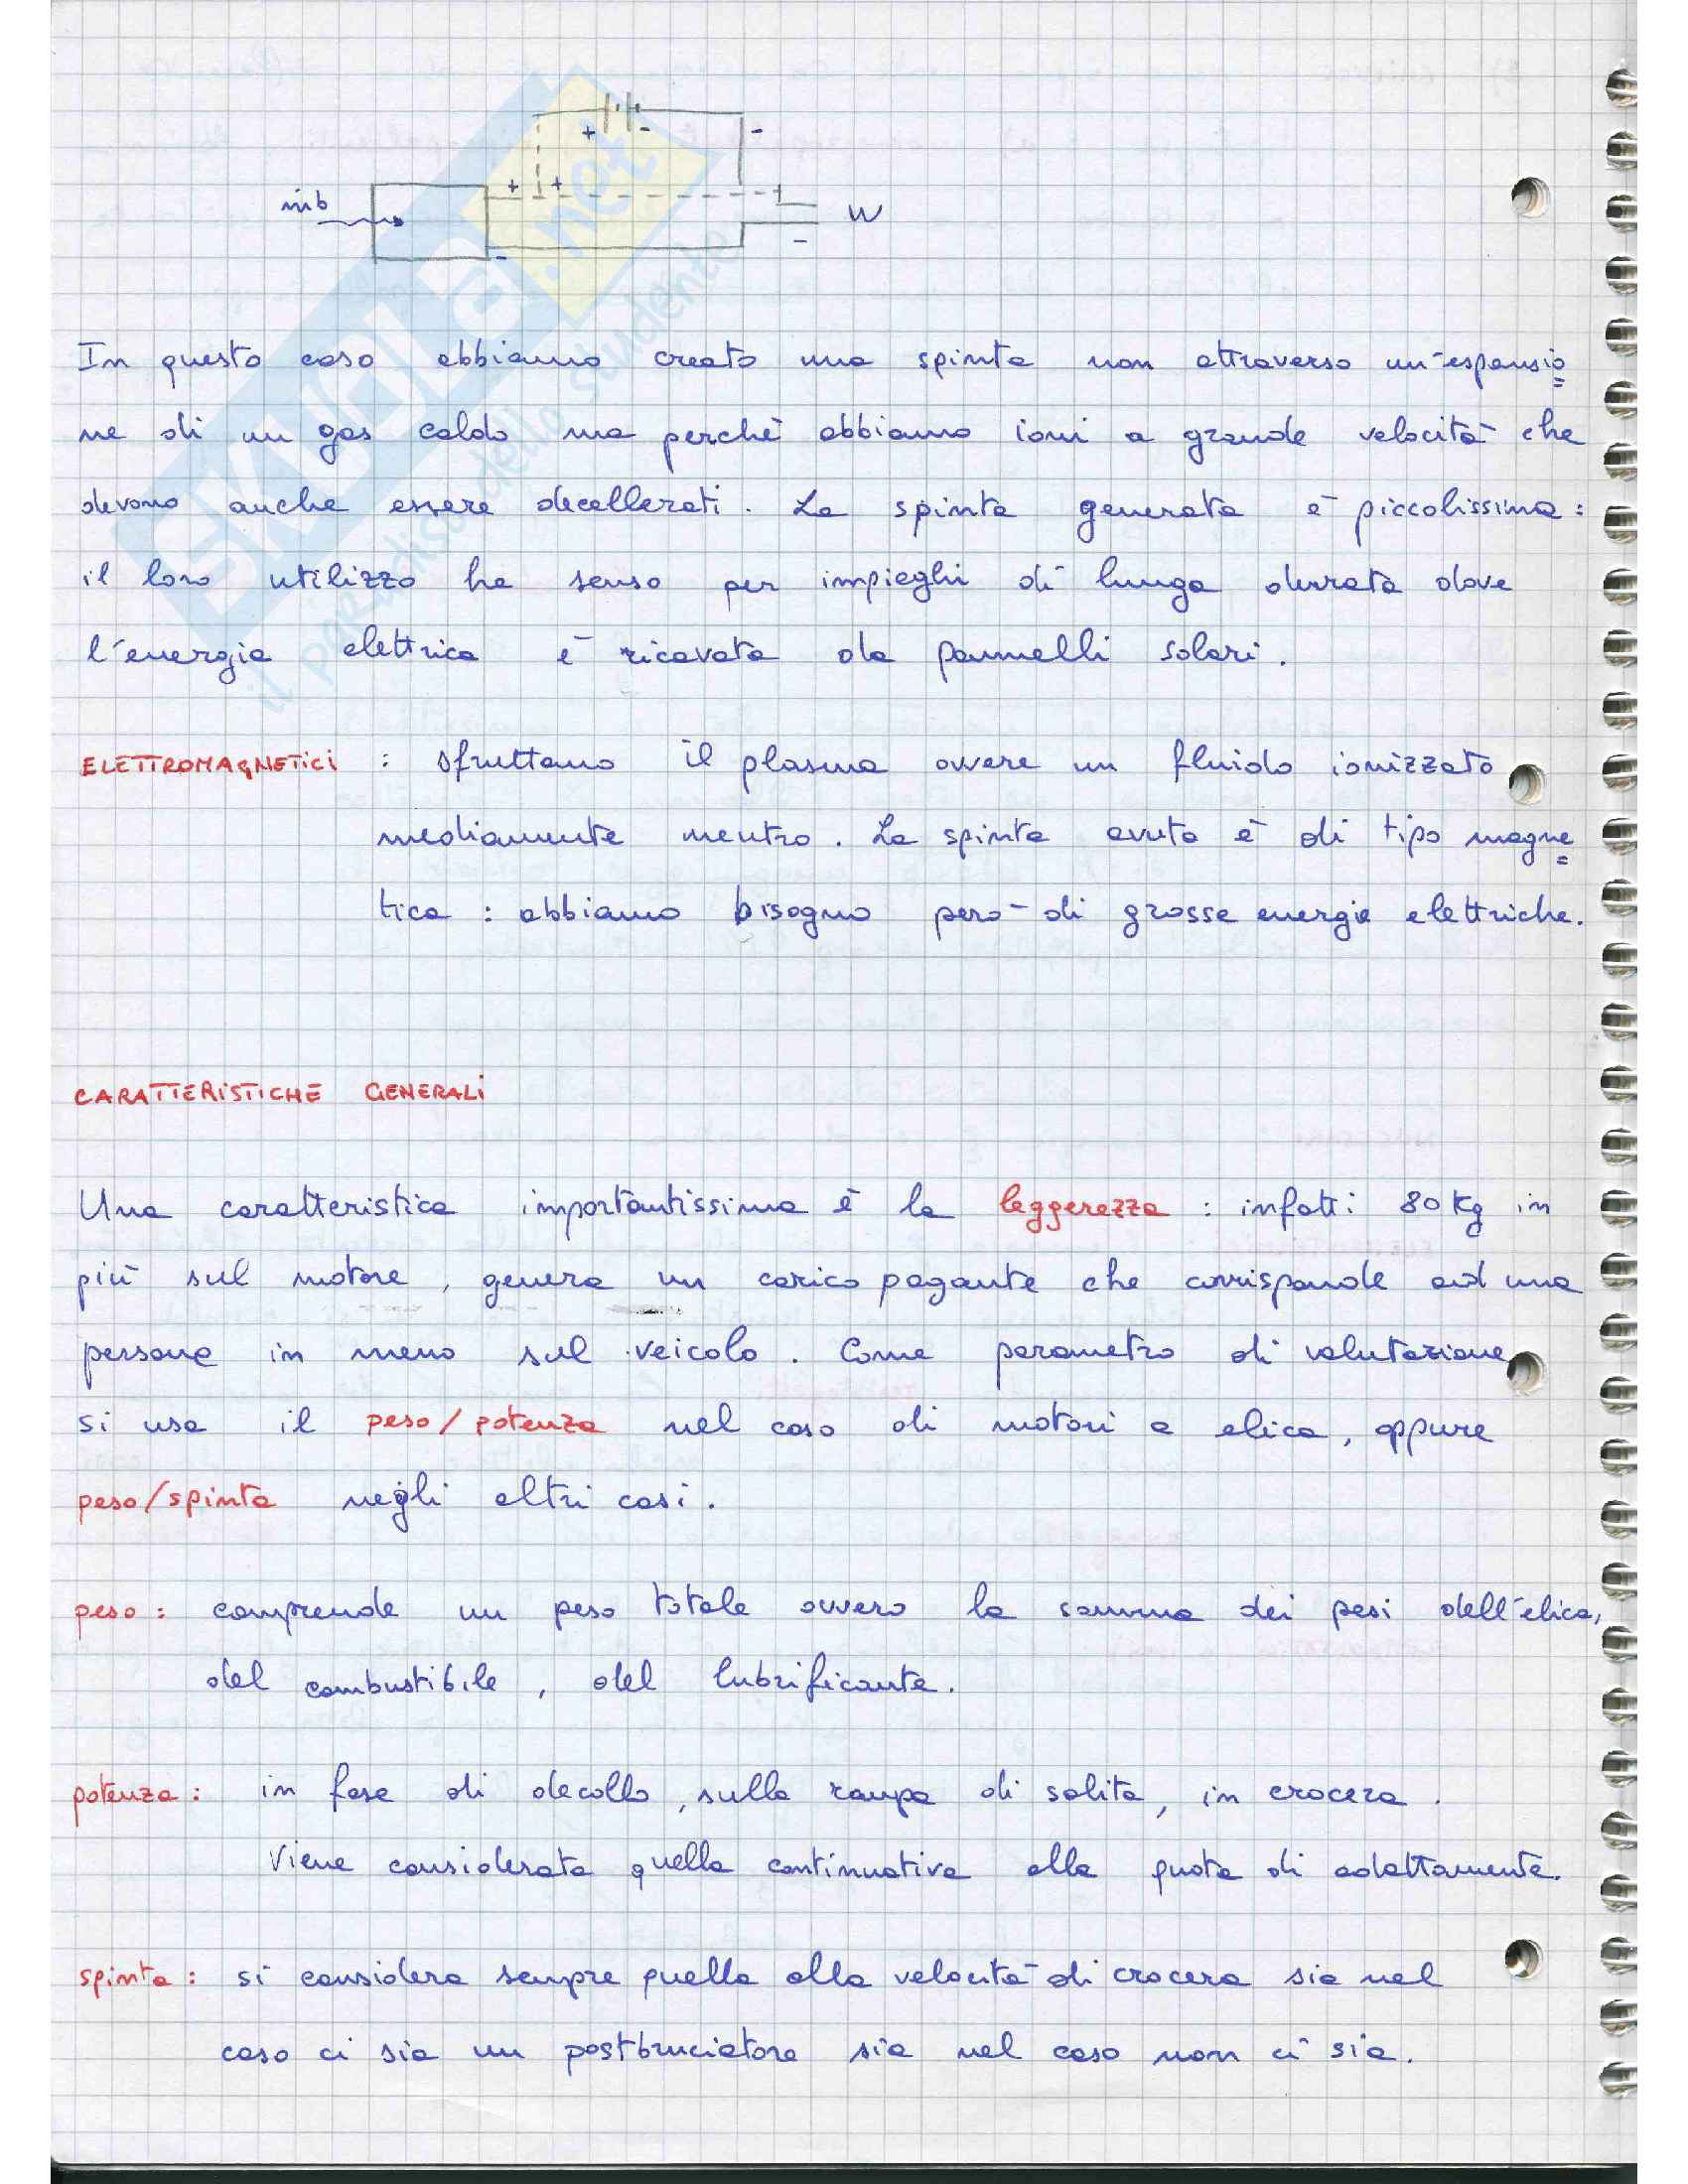 + -
-
+ +
ṁb
W
-
-
In questo caso abbiamo creato una spinta non attraverso un'espansio
ne di un gas caldo ma perchè abbiamo ioni a grande velocità che
devono anche essere decellerati. La spinta generata è piccolissima:
il loro utilizzo ha senso per impieghi di lunga durata dove
l'energia elettrica è ricavata da pannelli solari.
ELETTROMAGNETICI : sfruttano il plasma ovvero un fluido ionizzato
mediamente neutro. La spinta avuta è di tipo magne
tica : abbiamo bisogno però di grosse energie elettriche.
CARATTERISTICHE GENERALI
Una caratteristica importantissima è la leggerezza : infatti 80 Kg in
più sul motore, genera un carico pagante che corrisponde ad una
persona in meno sul veicolo. Come parametro di valutazione
si usa il peso/potenza nel caso di motori a elica, oppure
peso/spinta negli altri casi.
peso : comprende un peso totale ovvero la somma dei pesi dell'elica,
del combustibile, del lubrificante.
potenza : in fase di decollo, sulla rampa di salita, in crocera.
Viene considerata quella continuativa alla quota di adattamento.
spinta : si considera sempre quella alla velocità di crocera sia nel
caso ci sia un postbruciatore sia nel caso non ci sia.
SKUOLA.net
il paradiso dello studente